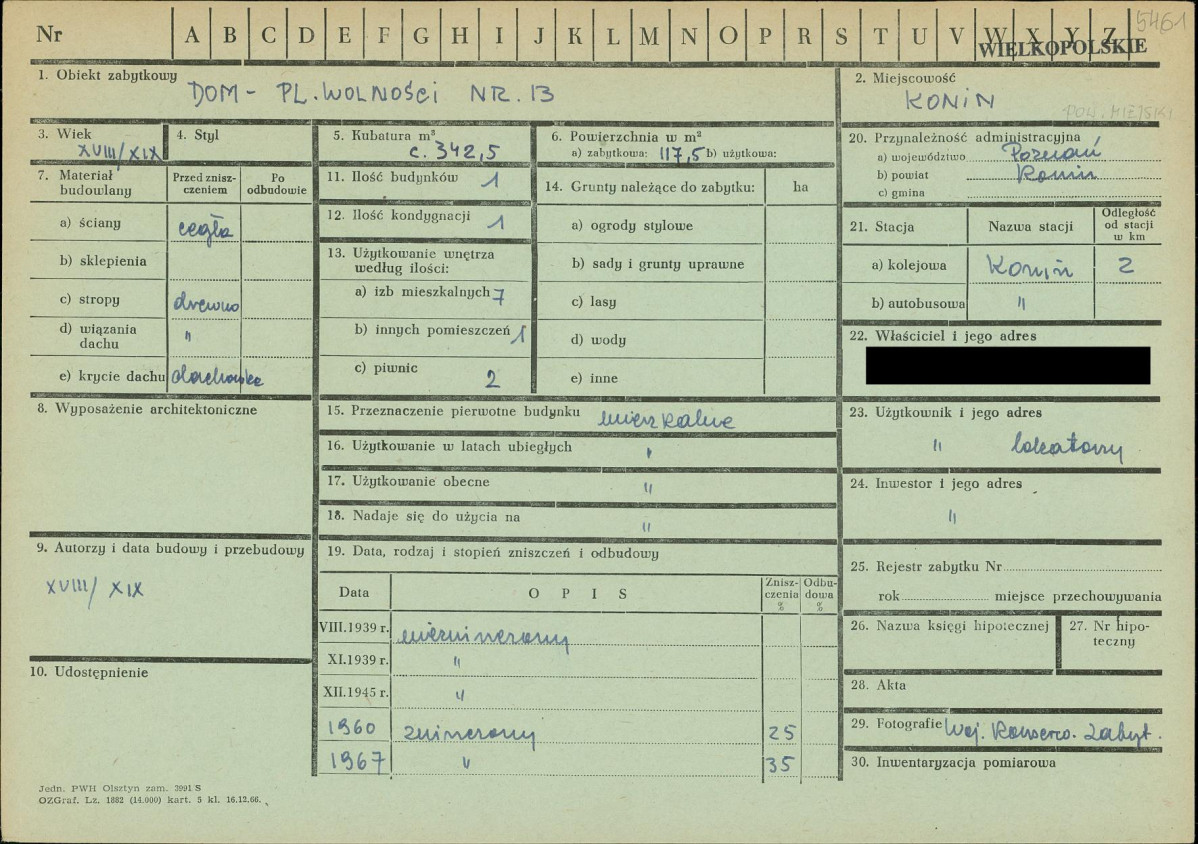 5461
Nr A B C D E F G H I J K L M N O P R S T U V W X Y Z
WIELKOPOLSKIE
1. Obiekt zabytkowy
DOM - PL. WOLNOŚCI NR. 13
2. Miejscowość
KONIN
POW. MIEJSKI
3. Wiek
XVIII/XIX
4. Styl
5. Kubatura m³
c. 342,5
6. Powierzchnia w m²
a) zabytkowa: 117,5 b) użytkowa:
7. Materiał budowlany
Przed znisz-
czeniem
Po
odbudowie
a) ściany cegła
b) sklepienia
c) stropy drewno
d) wiązania
dachu "
e) krycie dachu dachówka
8. Wyposażenie architektoniczne
9. Autorzy i data budowy i przebudowy
XVIII/XIX
10. Udostępnienie
11. Ilość budynków 1
12. Ilość kondygnacji 1
13. Użytkowanie wnętrza
według ilości:
a) izb mieszkalnych 7
b) innych pomieszczeń 1
c) piwnic 2
14. Grunty należące do zabytku: ha
a) ogrody stylowe
b) sady i grunty uprawne
c) lasy
d) wody
e) inne
15. Przeznaczenie pierwotne budynku mieszkalne
16. Użytkowanie w latach ubiegłych "
17. Użytkowanie obecne "
18. Nadaje się do użycia na "
19. Data, rodzaj i stopień zniszczeń i odbudowy
Data OPIS Znisz-
czenia
% Odbu-
dowa
%
VIII.1939 r. niezniszczony
XI.1939 r. "
XII.1945 r. "
1960 zniszczony 25
1967 " 35
20. Przynależność administracyjna
a) województwo Poznań
b) powiat Konin
c) gmina
21. Stacja Nazwa stacji Odległość
od stacji
w km
a) kolejowa Konin 2
b) autobusowa "
22. Właściciel i jego adres
23. Użytkownik i jego adres
" lokatorzy
24. Inwestor i jego adres
"
25. Rejestr zabytku Nr
rok miejsce przechowywania
26. Nazwa księgi hipotecznej
27. Nr hipo-
teczny
28. Akta
29. Fotografie Woj. Konserw. Zabyt.
30. Inwentaryzacja pomiarowa
Jedn. PWH Olsztyn zam. 3991 S
OZGraf. Lz. 1882 (14.000) kart. 5 kl. 16.12.66.